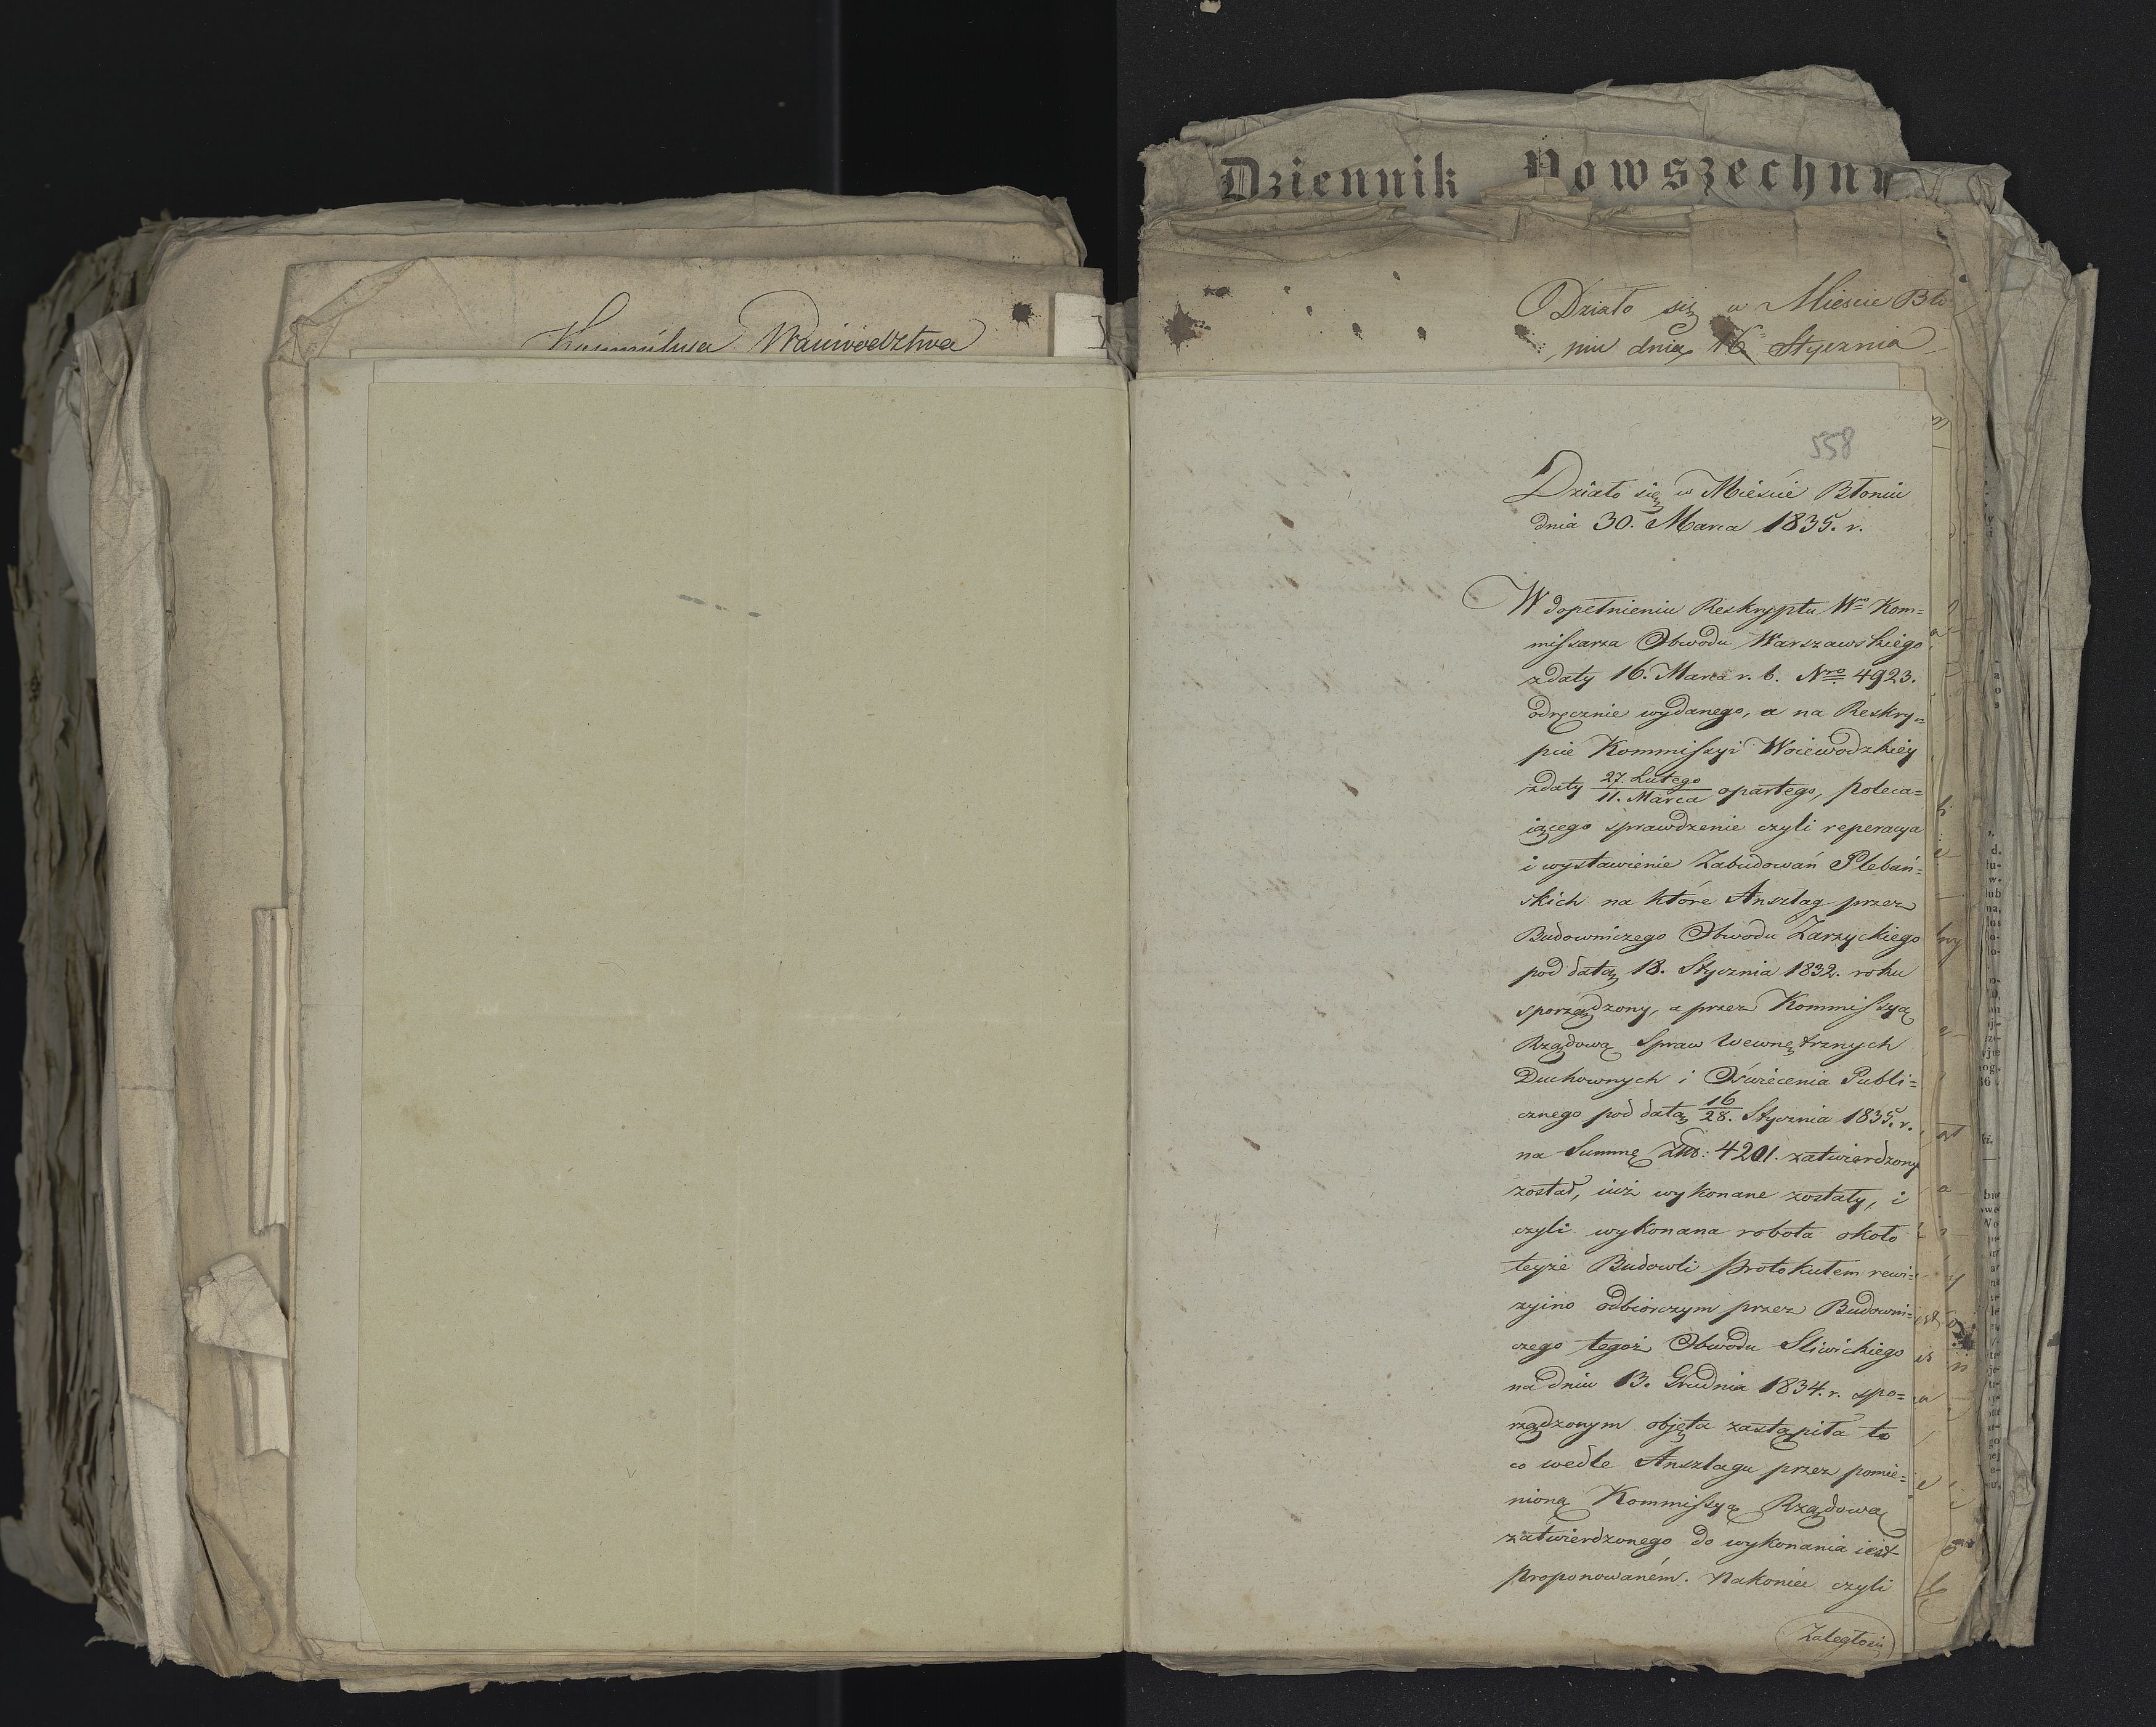 Dziennik Powszechny
Działo się w Mieście Bło-
niu dnia 16 Stycznia
Województwa
558
Działo się w Mieście Błoniu
dnia 30. Marca 1835. r.
W dopełnieniu Reskryptu Wgo Kom=
missarza Obwodu Warszawskiego
zdaty 16. Marca r. b. Nro 4923.
odręcznie wydanego, a na Reskry=
pcie Kommissyi Woiewodzkiey
zdaty 27. Lutego / 11. Marca opartego, poleca=
iącego sprawdzenie czyli reperacya
i wystawienie Zabudowań Plebań=
skich na które Anszlag przez
Budowniczego Obwodu Zarzyckiego
pod datą 18. Stycznia 1832. roku
sporządzony, a przez Kommissyą
Rządową Spraw Wewnętrznych
Duchownych i Oświecenia Publi=
cznego pod datą 16/28. Stycznia 1835. r.
na Summę Złł: 4201. zatwierdzony
został, iuż wykonane zostały, i
czyli wykonana robota około
teyże Budowli protokułem rewi=
zyino odbiorczym przez Budowni=
czego tegoż Obwodu Sliwickiego
na dniu 13. Grudnia 1834. r. spo=
rządzonym objęta zastąpiła to
co wedle Anszlagu przez pomie=
nioną Kommissyą Rządową
zatwierdzonego do wykonania iest
proponowaném. Nakoniec czyli
Zaległości